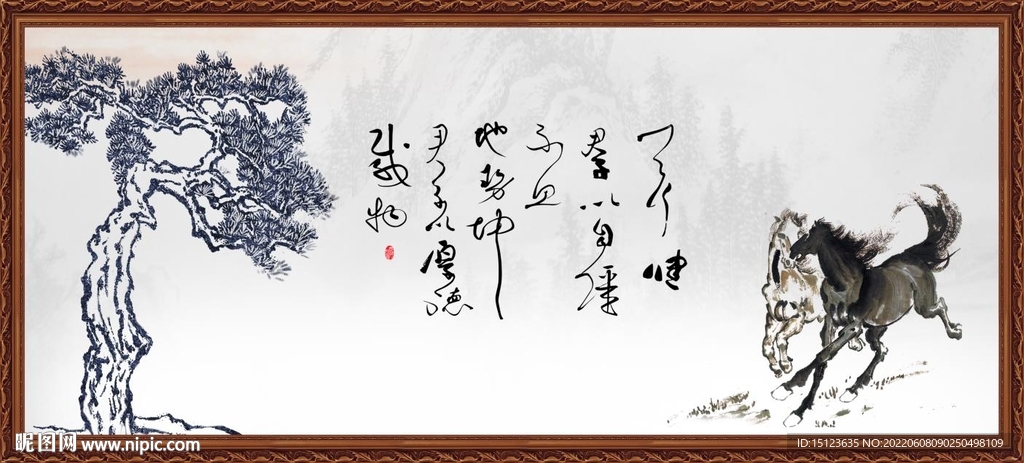 天行健
君子以自强
不息
地势坤
君子以厚德
载物
昵图网 www.nipic.com
ID:15123635 NO:20220608090250498109